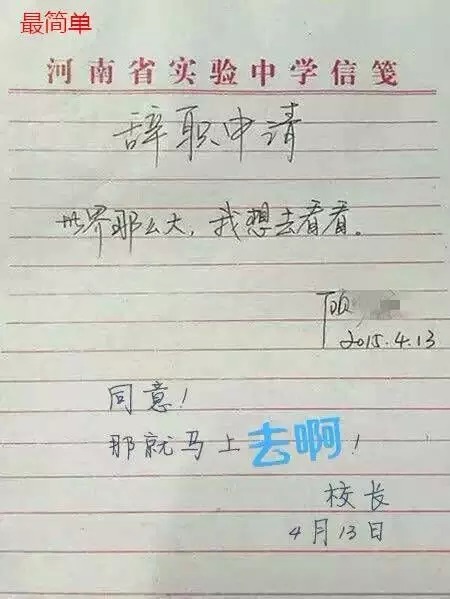 最简单
河南省实验中学信笺
辞职申请
世界那么大，我想去看看。
顾
2015.4.13
同意！
那就马上去啊！
校长
4月13日